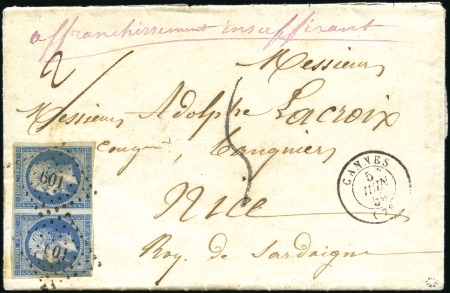 affranchissement insuffisant
2
Messieurs
Messieurs Adolphe Lacroix
Banquiers
Nice
Roy. de Sardaigne
CANNES
5
JUIN
601
601